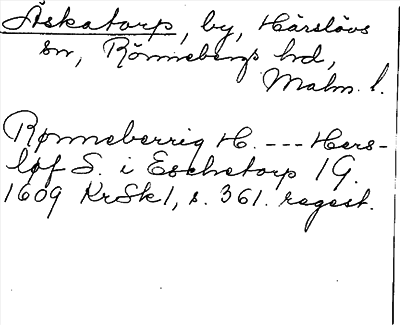 Äskatorp, by, Härslövs
sn, Rönnebergs hd,
Malm. l.
Rønneberrig H. --- Hers-
løf S. i Eschetorp 1 G.
1609 KrSk 1, s. 361. regest.